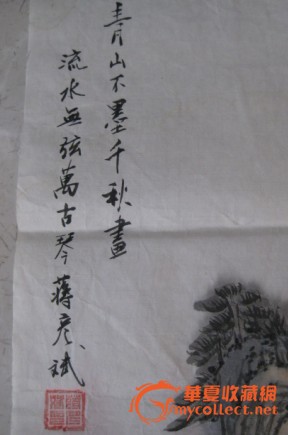 青山不墨千秋畫
流水無弦萬古琴 蔣彥斌
華夏收藏網
mycollect.net